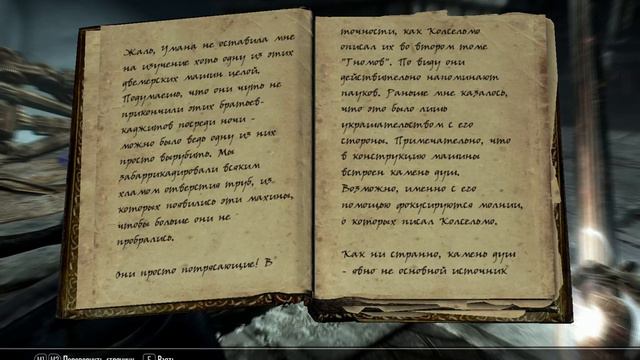 Жаль, Умана не оставила мне
на изучение хоть одну из этих
двемерских машин целой.
Подумаешь, что они чуть не
прикончили этих братьев-
каджитов посреди ночи -
можно было ведь одну из них
просто вырубить. Мы
забаррикадировали всяким
хламом отверстия труб, из
которых появились эти махины,
чтобы больше они не
пробрались.
Они просто потрясающие! В
точности, как Колсельмо
описал их во втором томе
"Гномов". По виду они
действительно напоминают
пауков. Раньше мне казалось,
что это было лишь
украшательством с его
стороны. Примечательно, что
в конструкцию машины
встроен камень душ.
Возможно, именно с его
помощью фокусируются молнии,
о которых писал Колсельмо.
Как ни странно, камень душ
- явно не основной источник
Переворачивать страницы
E Взять